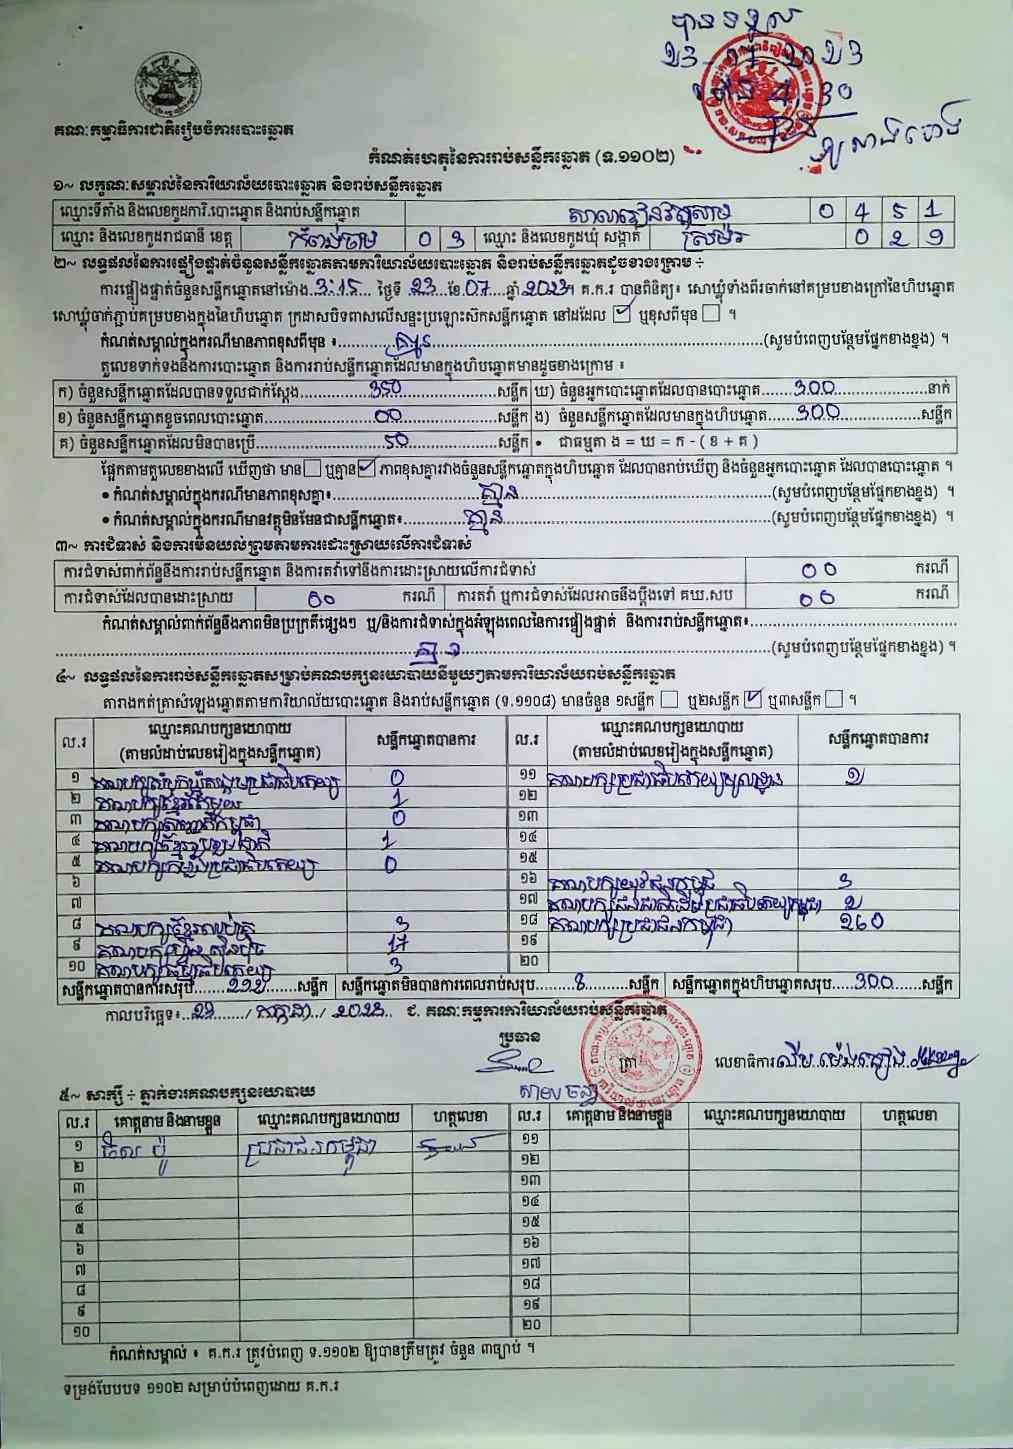 បានទទួល
23-07-2023
ម៉ោង 4:30
គណៈកម្មាធិការជាតិរៀបចំការបោះឆ្នោត
កំណត់ហេតុនៃការរាប់សន្លឹកឆ្នោត (ទ.១១០២)
១~ លក្ខណៈសម្គាល់នៃការិយាល័យបោះឆ្នោត និងរាប់សន្លឹកឆ្នោត
ឈ្មោះទីតាំង និងលេខកូដការិ.បោះឆ្នោត និងរាប់សន្លឹកឆ្នោត 0 4 5 1
ឈ្មោះ និងលេខកូដរាជធានី ខេត្ត កំពង់ចាម 0 3 ឈ្មោះ និងលេខកូដឃុំ សង្កាត់ ស្រម៉រ 0 2 9
២~ លទ្ធផលនៃការផ្ទៀងផ្ទាត់ចំនួនសន្លឹកឆ្នោតតាមការិយាល័យបោះឆ្នោត និងរាប់សន្លឹកឆ្នោតដូចខាងក្រោម ÷
ការផ្ទៀងផ្ទាត់ចំនួនសន្លឹកឆ្នោតនៅម៉ោង 3:15 ថ្ងៃទី 23 ខែ 07 ឆ្នាំ 2023។ គ.ក.រ បានពិនិត្យ៖ សោឃ្លុំទាំងពីរចាក់នៅគម្របខាងក្រៅនៃហិបឆ្នោត
សោឃ្លុំចាក់ភ្ជាប់គម្របខាងក្នុងនៃហិបឆ្នោត ក្រដាសបិទពាសលើសន្ទះប្រឡោះស៊កសន្លឹកឆ្នោត នៅដដែល ☑ ឬខុសពីមុន ☐ ។
កំណត់សម្គាល់ក្នុងករណីមានភាពខុសពីមុន ៖ គ្មាន (សូមបំពេញបន្ថែមផ្នែកខាងខ្នង) ។
តួលេខទាក់ទងនឹងការបោះឆ្នោត និងការរាប់សន្លឹកឆ្នោតដែលមានក្នុងហិបឆ្នោតមានដូចខាងក្រោម ៖
ក) ចំនួនសន្លឹកឆ្នោតដែលបានទទួលជាក់ស្តែង 350 សន្លឹក ឃ) ចំនួនអ្នកបោះឆ្នោតដែលបានបោះឆ្នោត 300 នាក់
ខ) ចំនួនសន្លឹកឆ្នោតខូចពេលបោះឆ្នោត 00 សន្លឹក ង) ចំនួនសន្លឹកឆ្នោតដែលមានក្នុងហិបឆ្នោត 300 សន្លឹក
គ) ចំនួនសន្លឹកឆ្នោតដែលមិនបានប្រើ 50 សន្លឹក • ជាធម្មតា ង = ឃ = ក - ( ខ + គ )
ផ្អែកតាមតួលេខខាងលើ ឃើញថា មាន ☐ ឬគ្មាន ☑ ភាពខុសគ្នារវាងចំនួនសន្លឹកឆ្នោតក្នុងហិបឆ្នោត ដែលបានរាប់ឃើញ និងចំនួនអ្នកបោះឆ្នោត ដែលបានបោះឆ្នោត ។
• កំណត់សម្គាល់ក្នុងករណីមានភាពខុសគ្នា៖ គ្មាន (សូមបំពេញបន្ថែមផ្នែកខាងខ្នង) ។
• កំណត់សម្គាល់ក្នុងករណីមានវត្ថុមិនមែនជាសន្លឹកឆ្នោត៖ គ្មាន (សូមបំពេញបន្ថែមផ្នែកខាងខ្នង) ។
៣~ ការជំទាស់ និងការមិនយល់ព្រមតាមការដោះស្រាយលើការជំទាស់
ការជំទាស់ពាក់ព័ន្ធនឹងការរាប់សន្លឹកឆ្នោត និងការតវ៉ាទៅនឹងការដោះស្រាយលើការជំទាស់ 00 ករណី
ការជំទាស់ដែលបានដោះស្រាយ 00 ករណី ការតវ៉ា ឬការជំទាស់ដែលអាចនឹងប្តឹងទៅ គឃ.សប 00 ករណី
កំណត់សម្គាល់ពាក់ព័ន្ធនឹងភាពមិនប្រក្រតីផ្សេងៗ ឬ/និងការជំទាស់ក្នុងអំឡុងពេលនៃការផ្ទៀងផ្ទាត់ និងការរាប់សន្លឹកឆ្នោត៖
គ្មាន (សូមបំពេញបន្ថែមផ្នែកខាងខ្នង) ។
៤~ លទ្ធផលនៃការរាប់សន្លឹកឆ្នោតសម្រាប់គណបក្សនយោបាយនីមួយៗតាមការិយាល័យរាប់សន្លឹកឆ្នោត
តារាងកត់ត្រាសំឡេងឆ្នោតតាមការិយាល័យបោះឆ្នោត និងរាប់សន្លឹកឆ្នោត (ទ.១១០៨) មានចំនួន ១សន្លឹក ☐ ឬ២សន្លឹក ☑ ឬ៣សន្លឹក ☐ ។
ល.រ ឈ្មោះគណបក្សនយោបាយ (តាមលំដាប់លេខរៀងក្នុងសន្លឹកឆ្នោត) សន្លឹកឆ្នោតបានការ ល.រ ឈ្មោះគណបក្សនយោបាយ (តាមលំដាប់លេខរៀងក្នុងសន្លឹកឆ្នោត) សន្លឹកឆ្នោតបានការ
១ គណបក្សសំបុកឃ្មុំសង្គមប្រជាធិបតេយ្យ 0 ១១ គណបក្សប្រជាធិបតេយ្យមូលដ្ឋាន ១
២ គណបក្សខ្មែរតែមួយ 1 ១២
៣ គណបក្សសញ្ជាតិកម្ពុជា 0 ១៣
៤ គណបក្សខ្មែររួបរួមជាតិ 1 ១៤
៥ គណបក្សកម្លាំងប្រជាធិបតេយ្យ 0 ១៥
៦ ១៦ គណបក្សយុវជនកម្ពុជា 3
៧ ១៧ គណបក្សជនជាតិដើមប្រជាធិបតេយ្យកម្ពុជា
៨ គណបក្សខ្មែរឈប់ក្រ 3 ១៨ គណបក្សប្រជាជនកម្ពុជា 260
៩ គណបក្សហ្វ៊ុនស៊ិនប៉ិច 17 ១៩
១០ គណបក្សធម្មាធិបតេយ្យ 3 ២០
សន្លឹកឆ្នោតបានការសរុប សន្លឹក សន្លឹកឆ្នោតមិនបានការពេលរាប់សរុប 8 សន្លឹក សន្លឹកឆ្នោតក្នុងហិបឆ្នោតសរុប 300 សន្លឹក
កាលបរិច្ឆេទ៖ 23 / កក្កដា / 2023 ជ. គណៈកម្មការការិយាល័យរាប់សន្លឹកឆ្នោត
ប្រធាន
ត្រា លេខាធិការ
៥~ សាក្សី ÷ ភ្នាក់ងារគណបក្សនយោបាយ
ល.រ គោត្តនាម និងនាមខ្លួន ឈ្មោះគណបក្សនយោបាយ ហត្ថលេខា ល.រ គោត្តនាម និងនាមខ្លួន ឈ្មោះគណបក្សនយោបាយ ហត្ថលេខា
១ ប្រជាជនកម្ពុជា ១១
២ ១២
៣ ១៣
៤ ១៤
៥ ១៥
៦ ១៦
៧ ១៧
៨ ១៨
៩ ១៩
១០ ២០
កំណត់សម្គាល់ ៖ គ.ក.រ ត្រូវបំពេញ ទ.១១០២ ឱ្យបានត្រឹមត្រូវ ចំនួន ៣ច្បាប់ ។
ទម្រង់បែបបទ ១១០២ សម្រាប់បំពេញដោយ គ.ក.រ